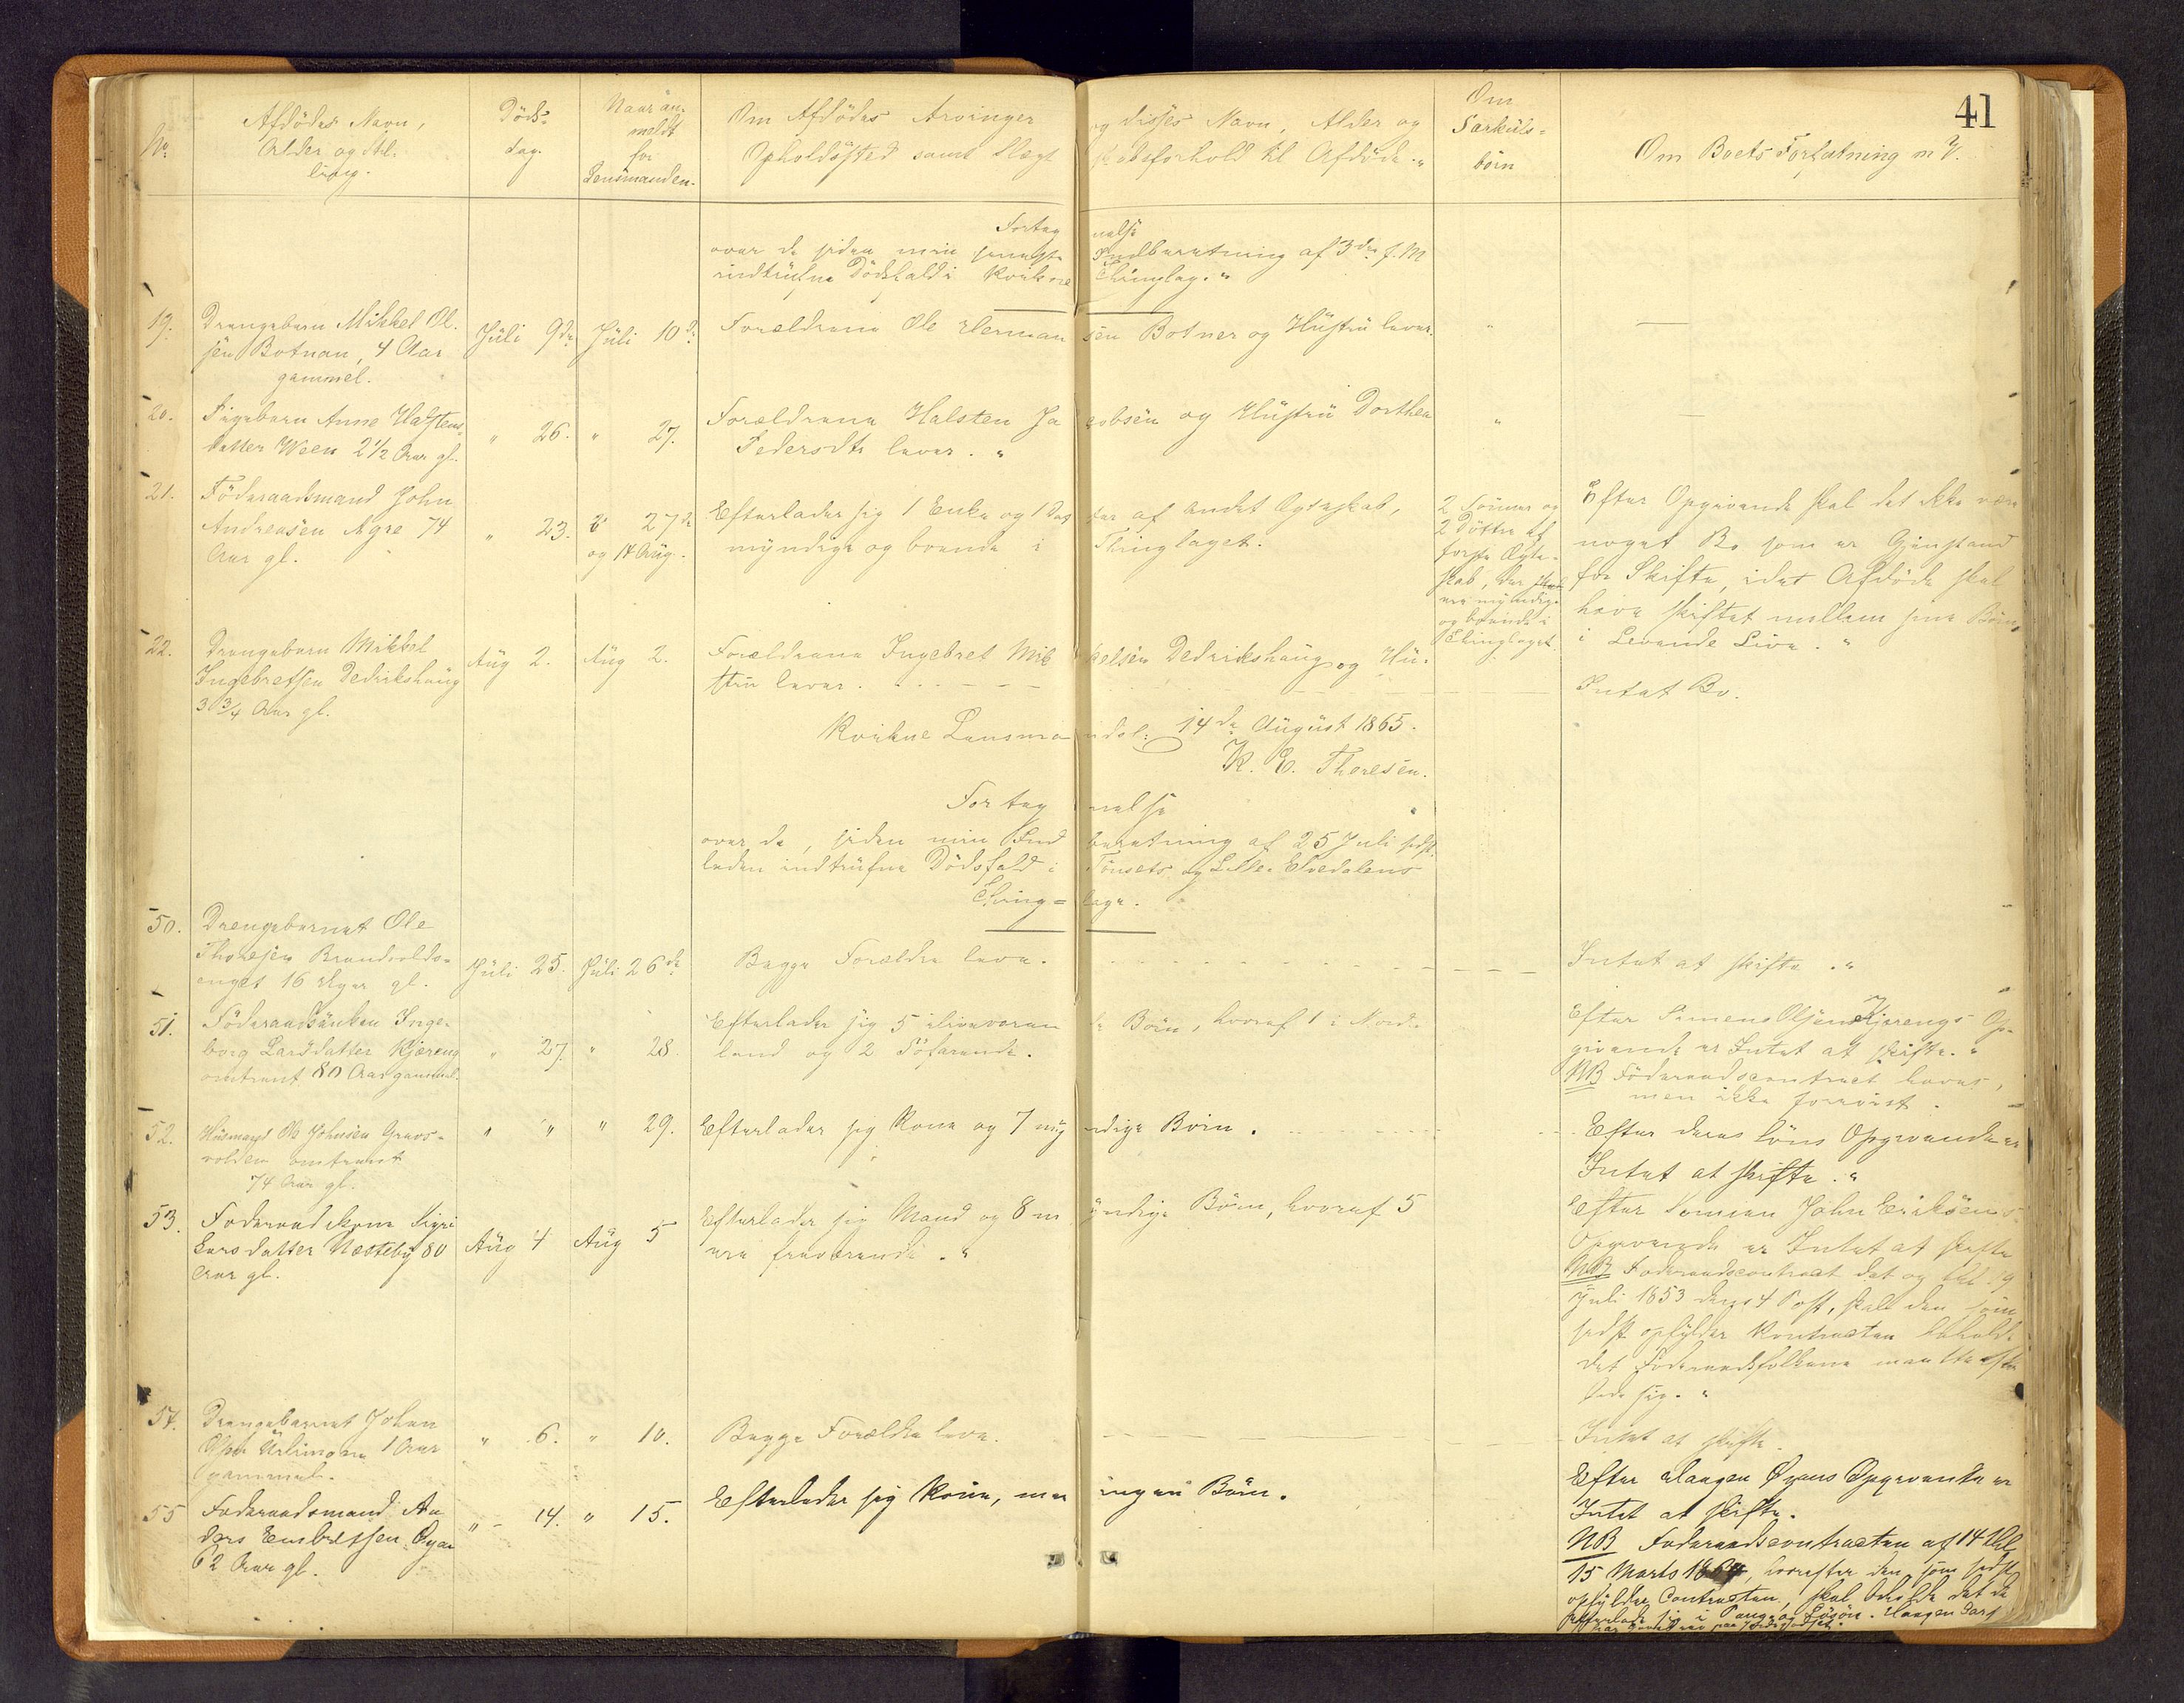 41
No
Afdödes Navn,
Alder og Stil-
ling.
Döds-
dag.
Naar an-
meldt
for
Lensmanden.
Om Afdödes Arvinger og disses Navn, Alder og
Opholdssted samt Slægtskabsforhold til Afdöde. "
Om
Særkuls-
börn
Om Boets Forfatning m. V.
Fortegnelse
over de siden min seneste Indberetning af 3die f. M.
indtrufne Dödsfald i Kvikne Thinglag. "
19.
Drengebarn Mikkel Ol-
sen Botnan, 4 Aar
gammel.
Juli 9de
Juli 10d.
Forældrene Ole Hermansen Botner og Hustru lever.
"
20.
Pigebarn Anne Halstens-
datter Ween 2 1/2 Aar gl.
" 26.
" 27.
Forældrene Halsten Jacobsen og Hustru Dorthea
Pedersdtr lever. "
"
21.
Föderaadsmand John
Andreasen Agre 74
Aar gl.
" 23.
27de
og 14 Aug.
Efterlader sig 1 Enke og 1 Datter af andet Ægteskab,
myndige og boende i Thinglaget.
2 Sönner og
2 Döttre af
forste Ægte-
skab, der
ere myndige
og boende i
Thinglaget.
Efter Opgivende skal det ikke være
noget Bo som er Gjenstand
for Skifte, idet Afdöde skal
have skiftet mellem sine Börn
i Levende Live. "
22.
Drengebarn Mikkel
Ingebretsen Dedrikshaug
3 3/4 Aar gl.
Aug 2.
Aug 2.
Forældrene Ingebret Mikkelsen Dedrikshaug og Hu-
stru lever.
Intet Bo.
Kvikne Lensmandsb: 14de August 1865.
K. E. Thoresen.
Fortegnelse
over de, siden min Indberetning af 25 Juli sidst-
leden indtrufne Dödsfald i Tönsets og Lille-Elvedalens
Thing-lage.
50.
Drengebarnet Ole
Thoresen Brandvolds-
enget 16 Uger gl.
Juli 25.
Juli 26de
Begge Forældre leve.
Intet at skifte. "
51.
Föderaadsenken Inge-
borg Larsdatter Kjæreng
omtrent 80 Aar gammel.
" 27.
" 28.
Efterlader sig 5 iliveværende Börn, hvoraf 1 i Nord-
land og 2 Söfarende.
Efter Simen Olsen Kjærengs Op-
givende er Intet at skifte. "
NB Föderaadscontract haves,
men ikke forevist.
52.
Husmand Ole Johnsen Gravs-
volden omtrent
74 Aar gl.
" "
" 29.
Efterlader sig Kone og 7 myndige Börn.
Efter deres Söns Opgivende er
Intet at skifte. "
53.
Foderaadskone Sigri
Larsdatter Næsteby 80
Aar gl.
Aug 4
Aug 5
Efterlader sig Mand og 8 myndige Börn, hvoraf 5
ere fraværende. "
Efter Sönnen John Eriksens
Opgivende er Intet at skifte
NB Foderaadscontract dat og thl 19
Juli 1853 dens 4 Post, skal den som
sidst opfylder Kontracten beholde
det Föderaadsfolkene maatte efter-
lade sig. "
54.
Drengebarnet Johan
1 Aar
gammel.
" 6.
" 10.
Begge Forældre leve.
Intet at skifte.
55
Foderaadsmand An
ders Embretsen Öyan
62 Aar gl.
" 14.
" 15.
Efterlader sig Kone, men ingen Börn.
Efter Haagen Öyens Opgivende er
Intet at skifte.
NB Foderaadscontracten af 14 thl
15 Marts, hvorefter den som sidst
opfylder Contracten, skal beholde det de
efterlade sig i Penge og Lösöre. Haagen